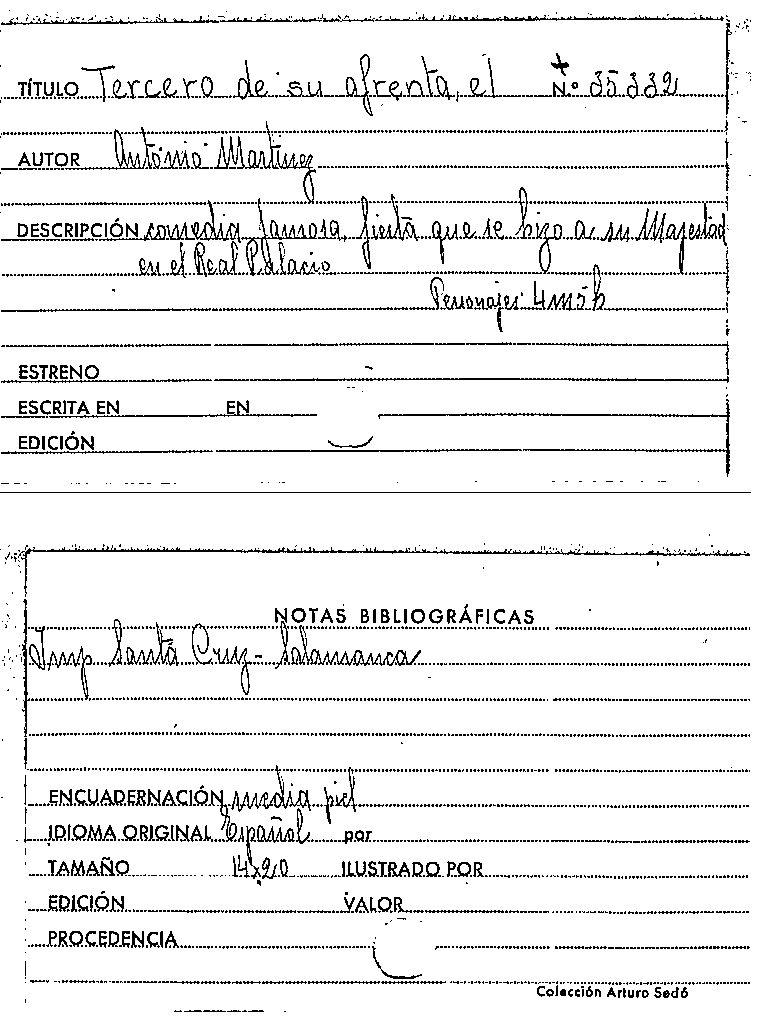 TÍTULO Tercero de su afrenta, el N.º 35332
AUTOR Antonio Martinez
DESCRIPCIÓN comedia famosa, fiesta que se hizo a su Majestad
en el Real Palacio
Personajes 4m5h
ESTRENO
ESCRITA EN EN
EDICIÓN
NOTAS BIBLIOGRÁFICAS
Imp Santa Cruz - Salamanca
ENCUADERNACIÓN media piel
IDIOMA ORIGINAL Español por
TAMAÑO 14x20 ILUSTRADO POR
EDICIÓN VALOR
PROCEDENCIA
Colección Arturo Sedó